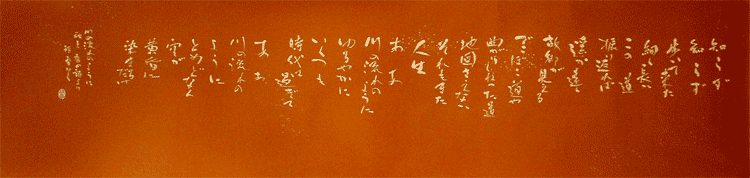 知らず
知らず
歩いて来た
細く長い
この道
振返れば
遥か遠く
故郷が見える
でこぼこ道や
曲がりくねった道
地図さえない
それもまた
人生
ああ
川の流れのように
ゆるやかに
いくつも
時代は過ぎて
ああ
川の流れの
ように
とめどなく
空が
黄昏に
染まるだけ
川の流れのように